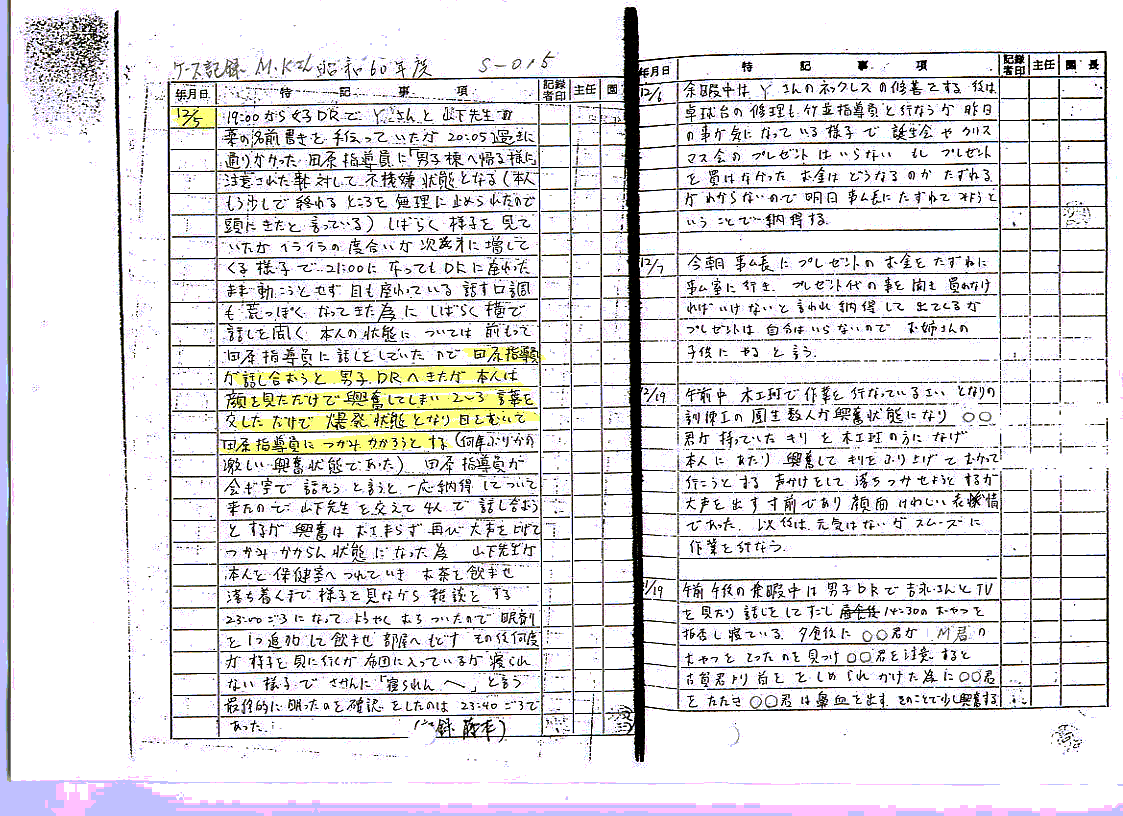 ケース記録 M.Kさん 昭和60年度 S-015
年月日 特記事項 記録者印 主任 園
12/5 19:00からくるDRで Y.さんと 山下先生の
薬の名前書きを手伝っていたが 20:05過ぎに
通りかかった 田原指導員に「男子棟へ帰る様に
注意された事に対して 不機嫌状態となる(本人
もう少しで終れるところを無理に止められたので
頭にきたと言っている) しばらく様子を見て
いたが イライラの度合いが次第に増して
くる様子で 21:00になってもDRに座った
まま動こうとせず 目も座っている 話す口調
も荒っぽくなってきた為に しばらく横で
話しを聞く 本人の状態については前もって
田原指導員に話しをしていたので 田原指導員
が話し合おうと 男子DRへきたが 本人は
顔を見ただけで興奮してしまい 2〜3言葉を
交しただけで 爆発状態となり 目をむいて
田原指導員につかみかかろうとする (何年ぶりかの
激しい興奮状態であった) 田原指導員が
会ギ室で話そうと言うと 一応納得してついて
来たので 山下先生を交えて4人で話し合おう
とするが 興奮はおさまらず 再び大声を上げて
つかみかからん状態になった為 山下先生が
本人を保健室へつれていき お茶を飲ませ
落ち着くまで様子を見ながら雑談をする
23:00ごろになって ようやくおちついたので 眠剤
を1つ追加して飲ませ 部屋へもどす その後何度
か様子を見に行くが 布団に入っているが寝られ
ない様子で さかんに「寝られんへ」と言う
最終的に眠ったのを確認をしたのは 23:40ごろで
あった.
年月日 特記事項 記録者印 主任 園長
12/6 余暇中は Y さんのネックレスの修善をする 後は
卓球台の修理も 指導員と行なうが 昨日
の事が気になっている様子で 誕生会やクリス
マス会のプレゼントはいらない もしプレゼント
を買はなかった お金はどうなるのか たずねる
がわからないので 明日 事ム長にたずねてみようと
いうことで納得する.
12/7 今朝 事ム長にプレゼントのお金をたずねに
事ム室に行き. プレゼント代の事を聞も 買わなけ
ればいけないと言われ 納得して出てくるが
プレゼントは自分はいらないので お姉さんの
子供にやると言う.
12/19 午前中 木工班で作業を行なっているさい となりの
訓練工の園生数人が興奮状態になり ○○
君が持っていたキリを木工班の方になげ
本人にあたり 興奮してキリをふり上げてむかって
行こうとする 声かけをして落ちつかせようとするが
大声を出す寸前であり 顔面けわしい表情
であった. 以後は元気はないがスムーズに
作業を行なう.
/19 午前 午後の余暇中は男子DRで 吉永さんとTV
を見たり話しをしてすごし 14:30のおやつを
拒否し寝ている. 夕食後に○○君が M君の
おやつをとったのを見つけ ○○君を注意すると
古賀君より首を としめられかけた為に○○君
をたたき ○○君は鼻血を出す そのことで少し興奮する